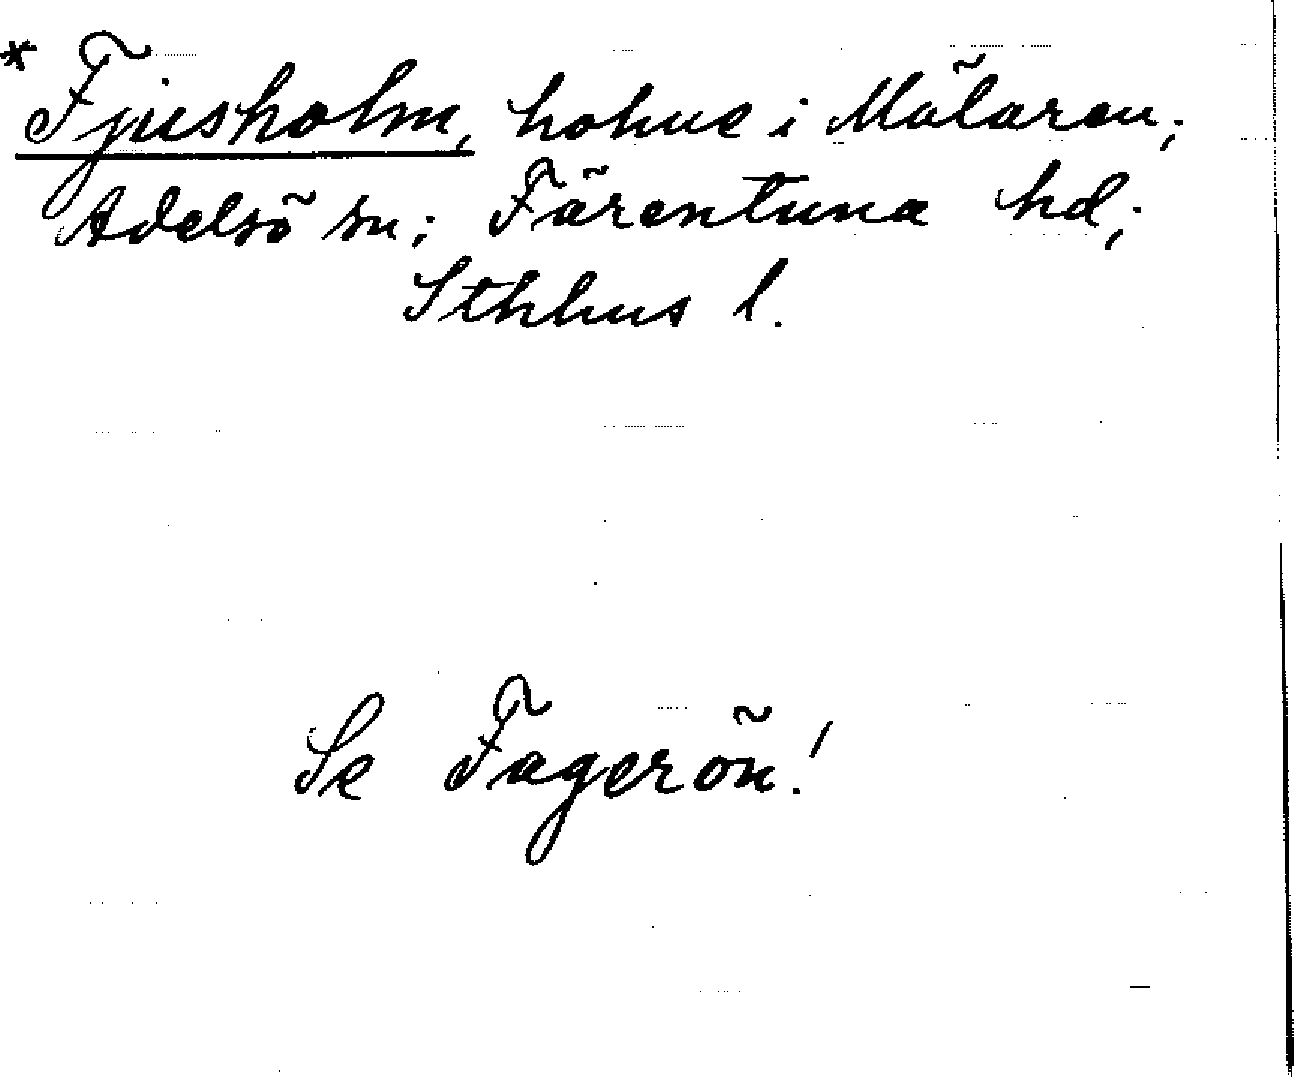 * Fjusholm, holme i Mälaren;
Adelsö sn; Färentuna hd;
Sthlms l.
Se Fagerön!